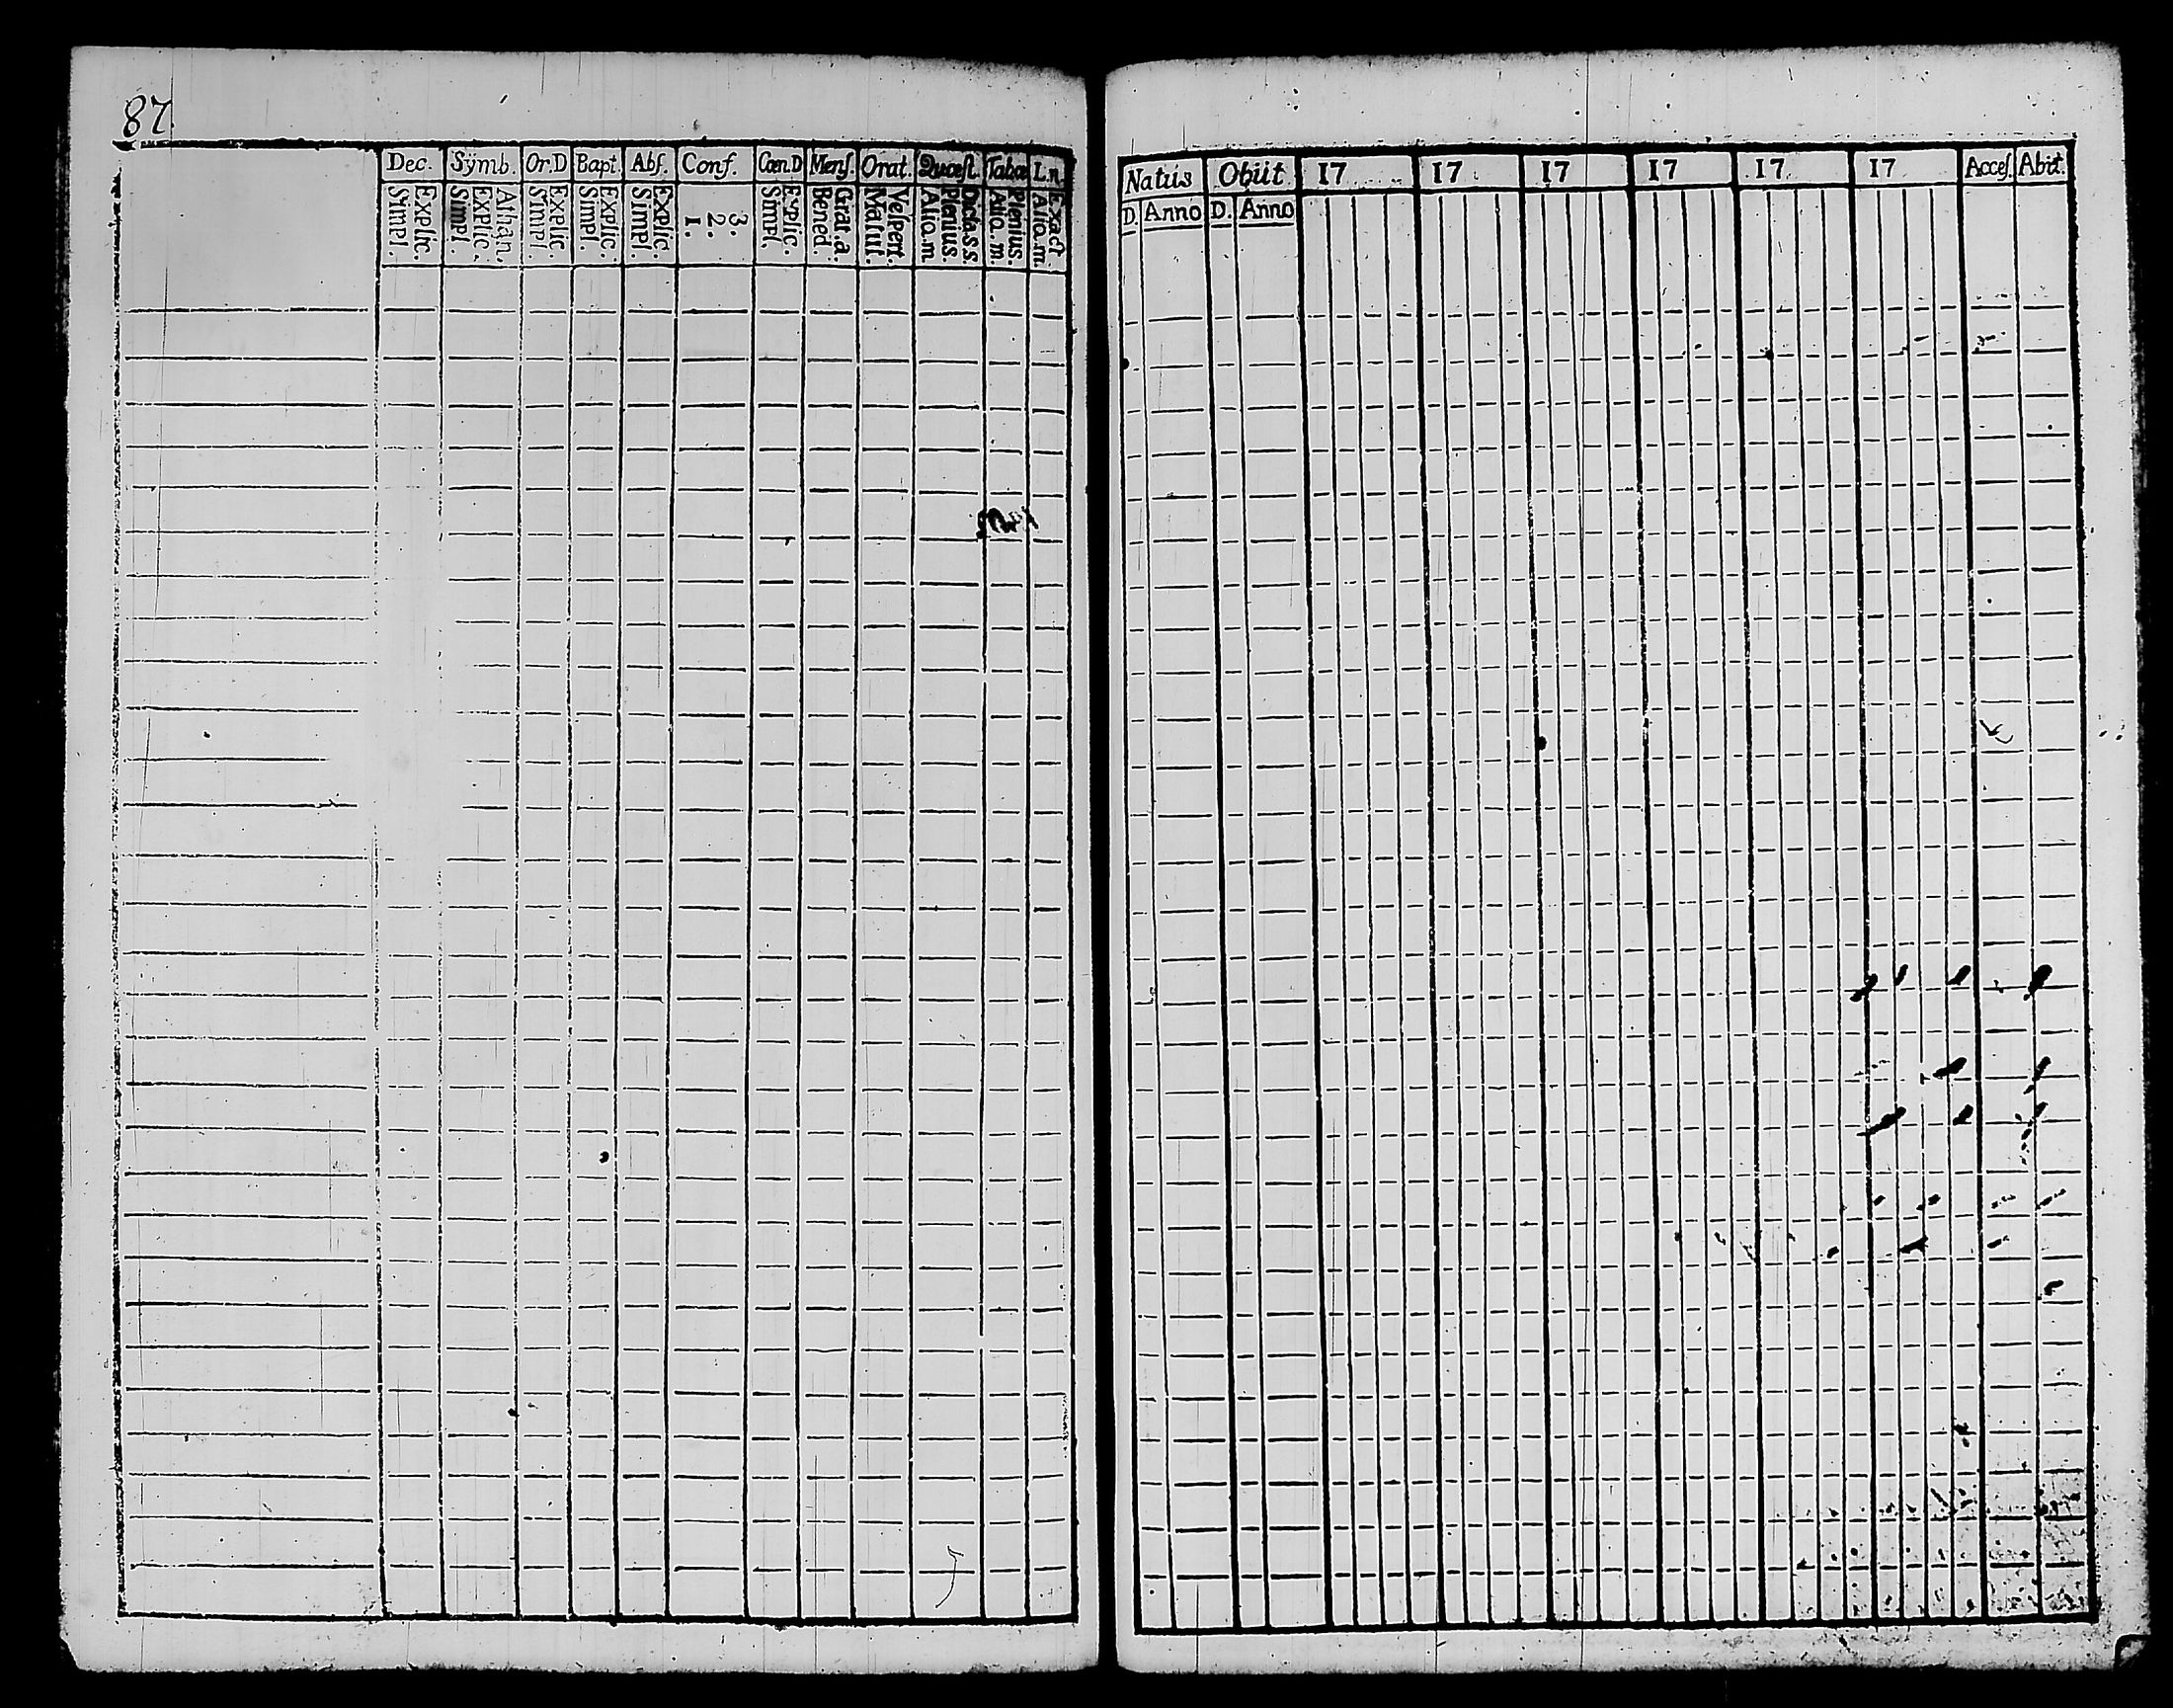 87.
Dec. Symb. Or.D Bapt. Abſ. Conf. Cœn.D Menſ. Orat. Quæſt. Tabæ L.n
Explic. Simpl. Athan. Explic. Simpl. Explic. Simpl. Explic. Simpl. Explic. Simpl. 3. 2. 1. Explic. Simpl. Grat.a. Bened. Veſpert. Matut. Dicta.s.s. Plenius. Alio.m Plenius. Alio.m Exact. Alio.m.
Natus Obiit 17 17 17 17 17 17 Acceſ. Abit.
D. Anno D. Anno